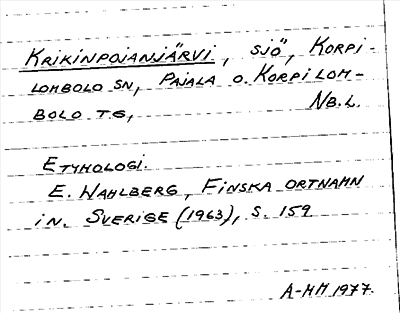 KRIKINPOJANJÄRVI, SJÖ, KORPI-
LOMBOLO SN, PAJALA O. KORPILOM-
BOLO TG, NB.L.
ETYMOLOGI.
E. WAHLBERG, FINSKA ORTNAMN
I N. SVERIGE (1963), S. 159
A-MH 1977.